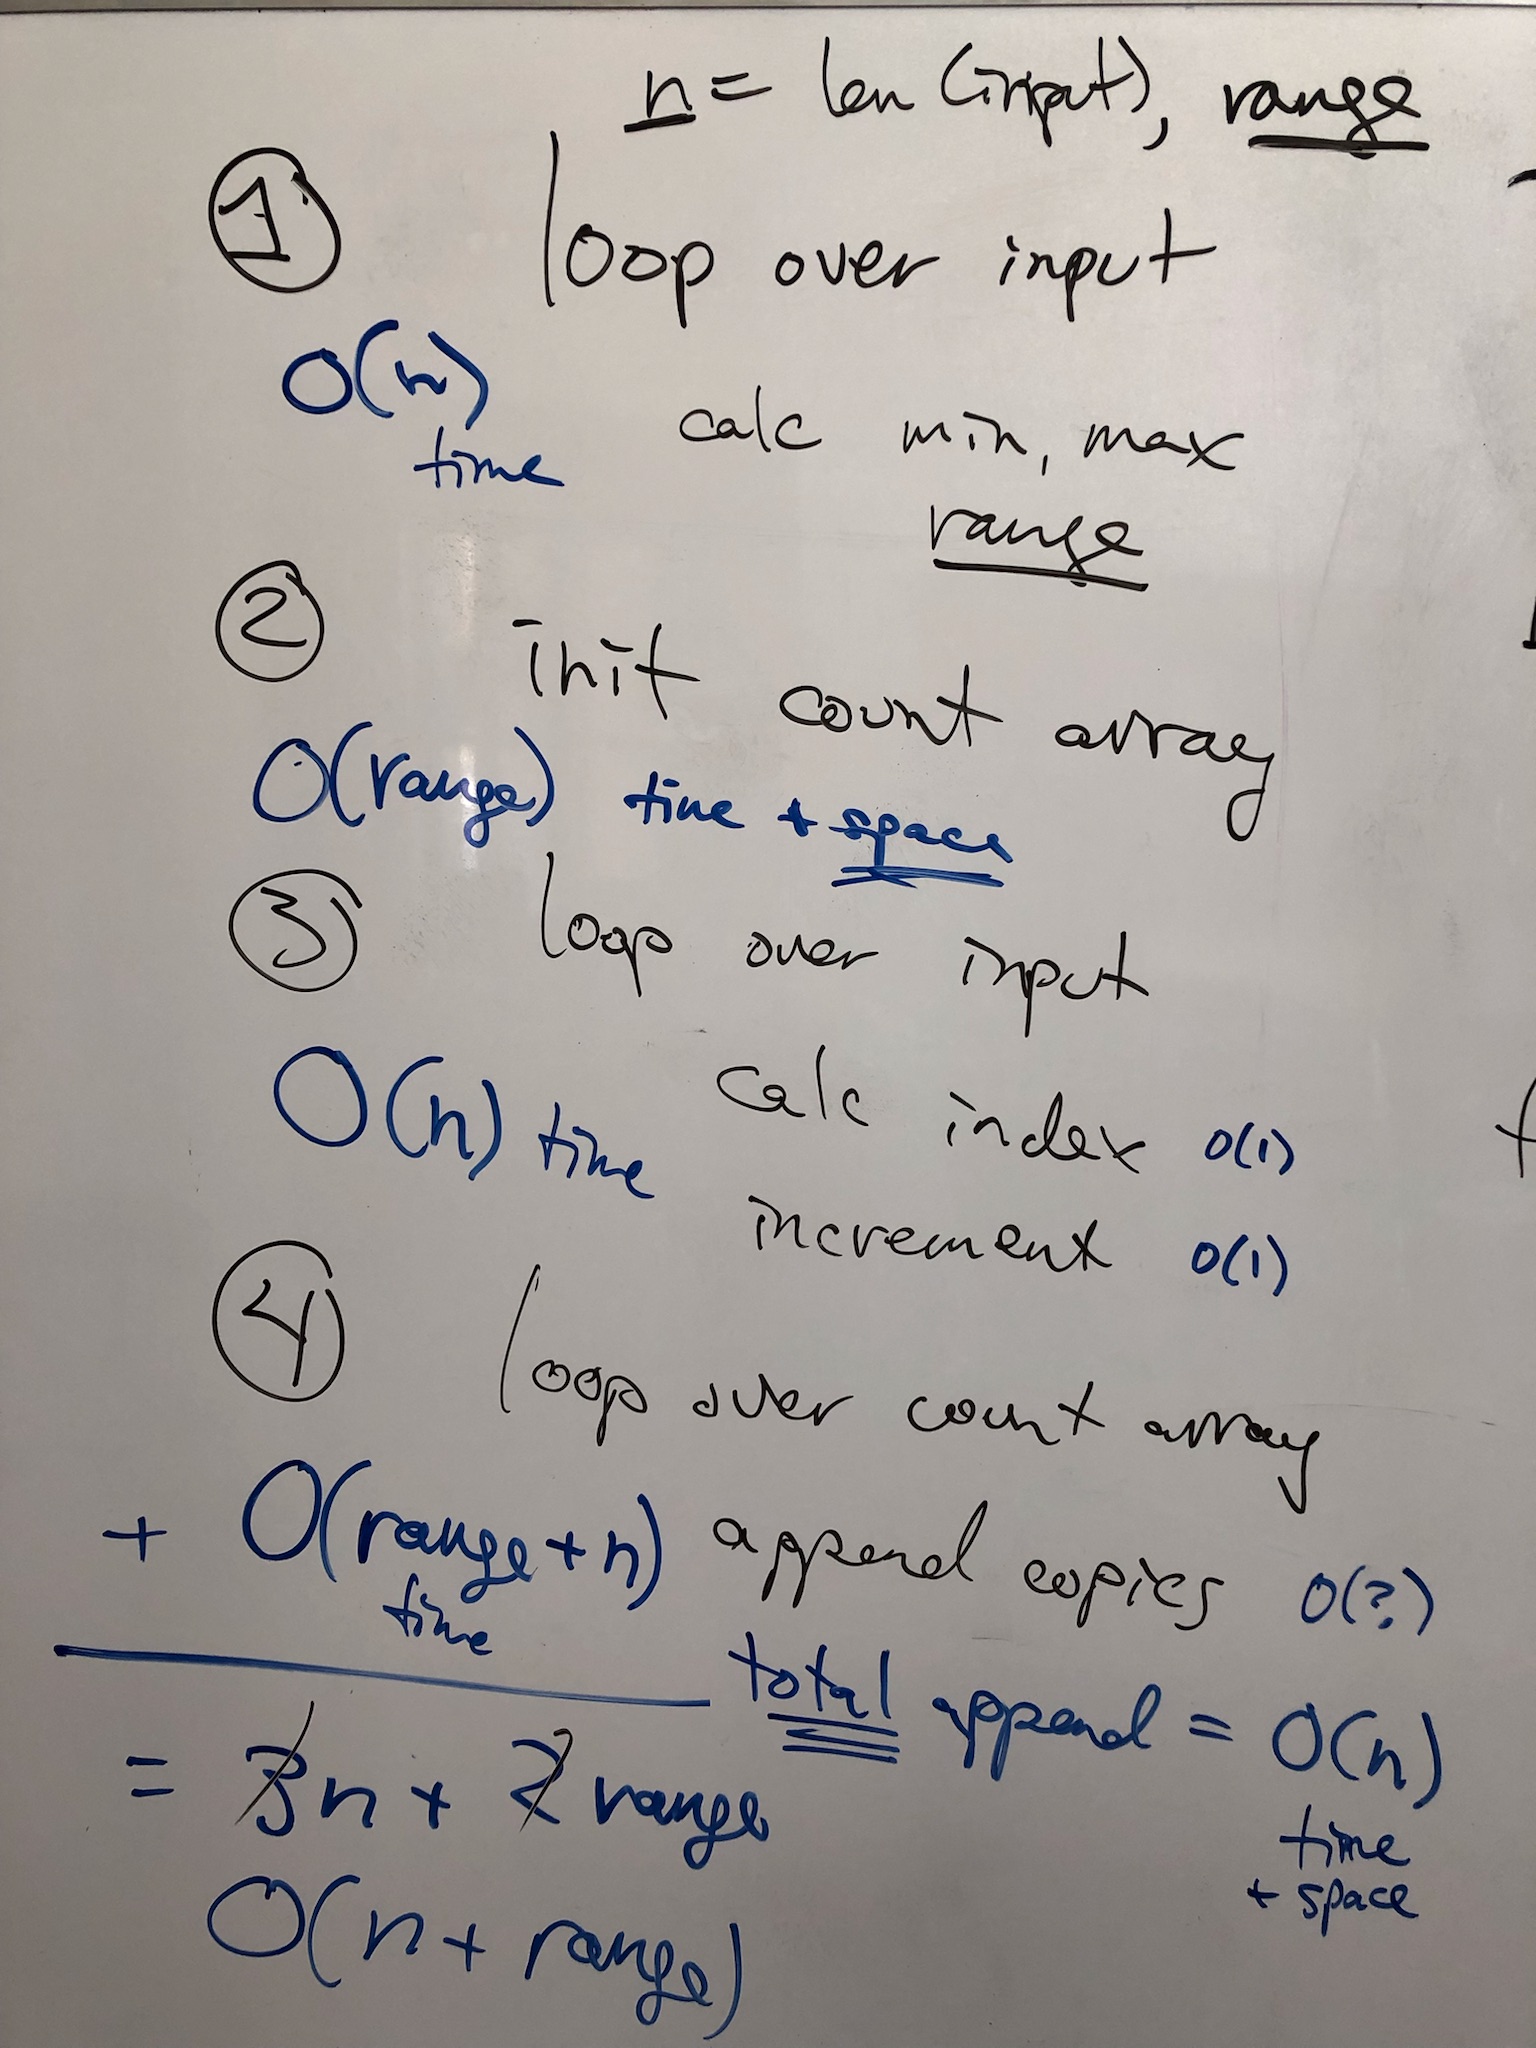 n = len(input), range
1 loop over input
O(n) time
calc min, max
range
2 init count array
O(range) time + space
3 loop over input
O(n) time
calc index O(1)
increment O(1)
4 loop over count array
+ O(range + n) time
append copies O(?)
total append = O(n)
time
+ space
= 3n + 2 range
O(n + range)